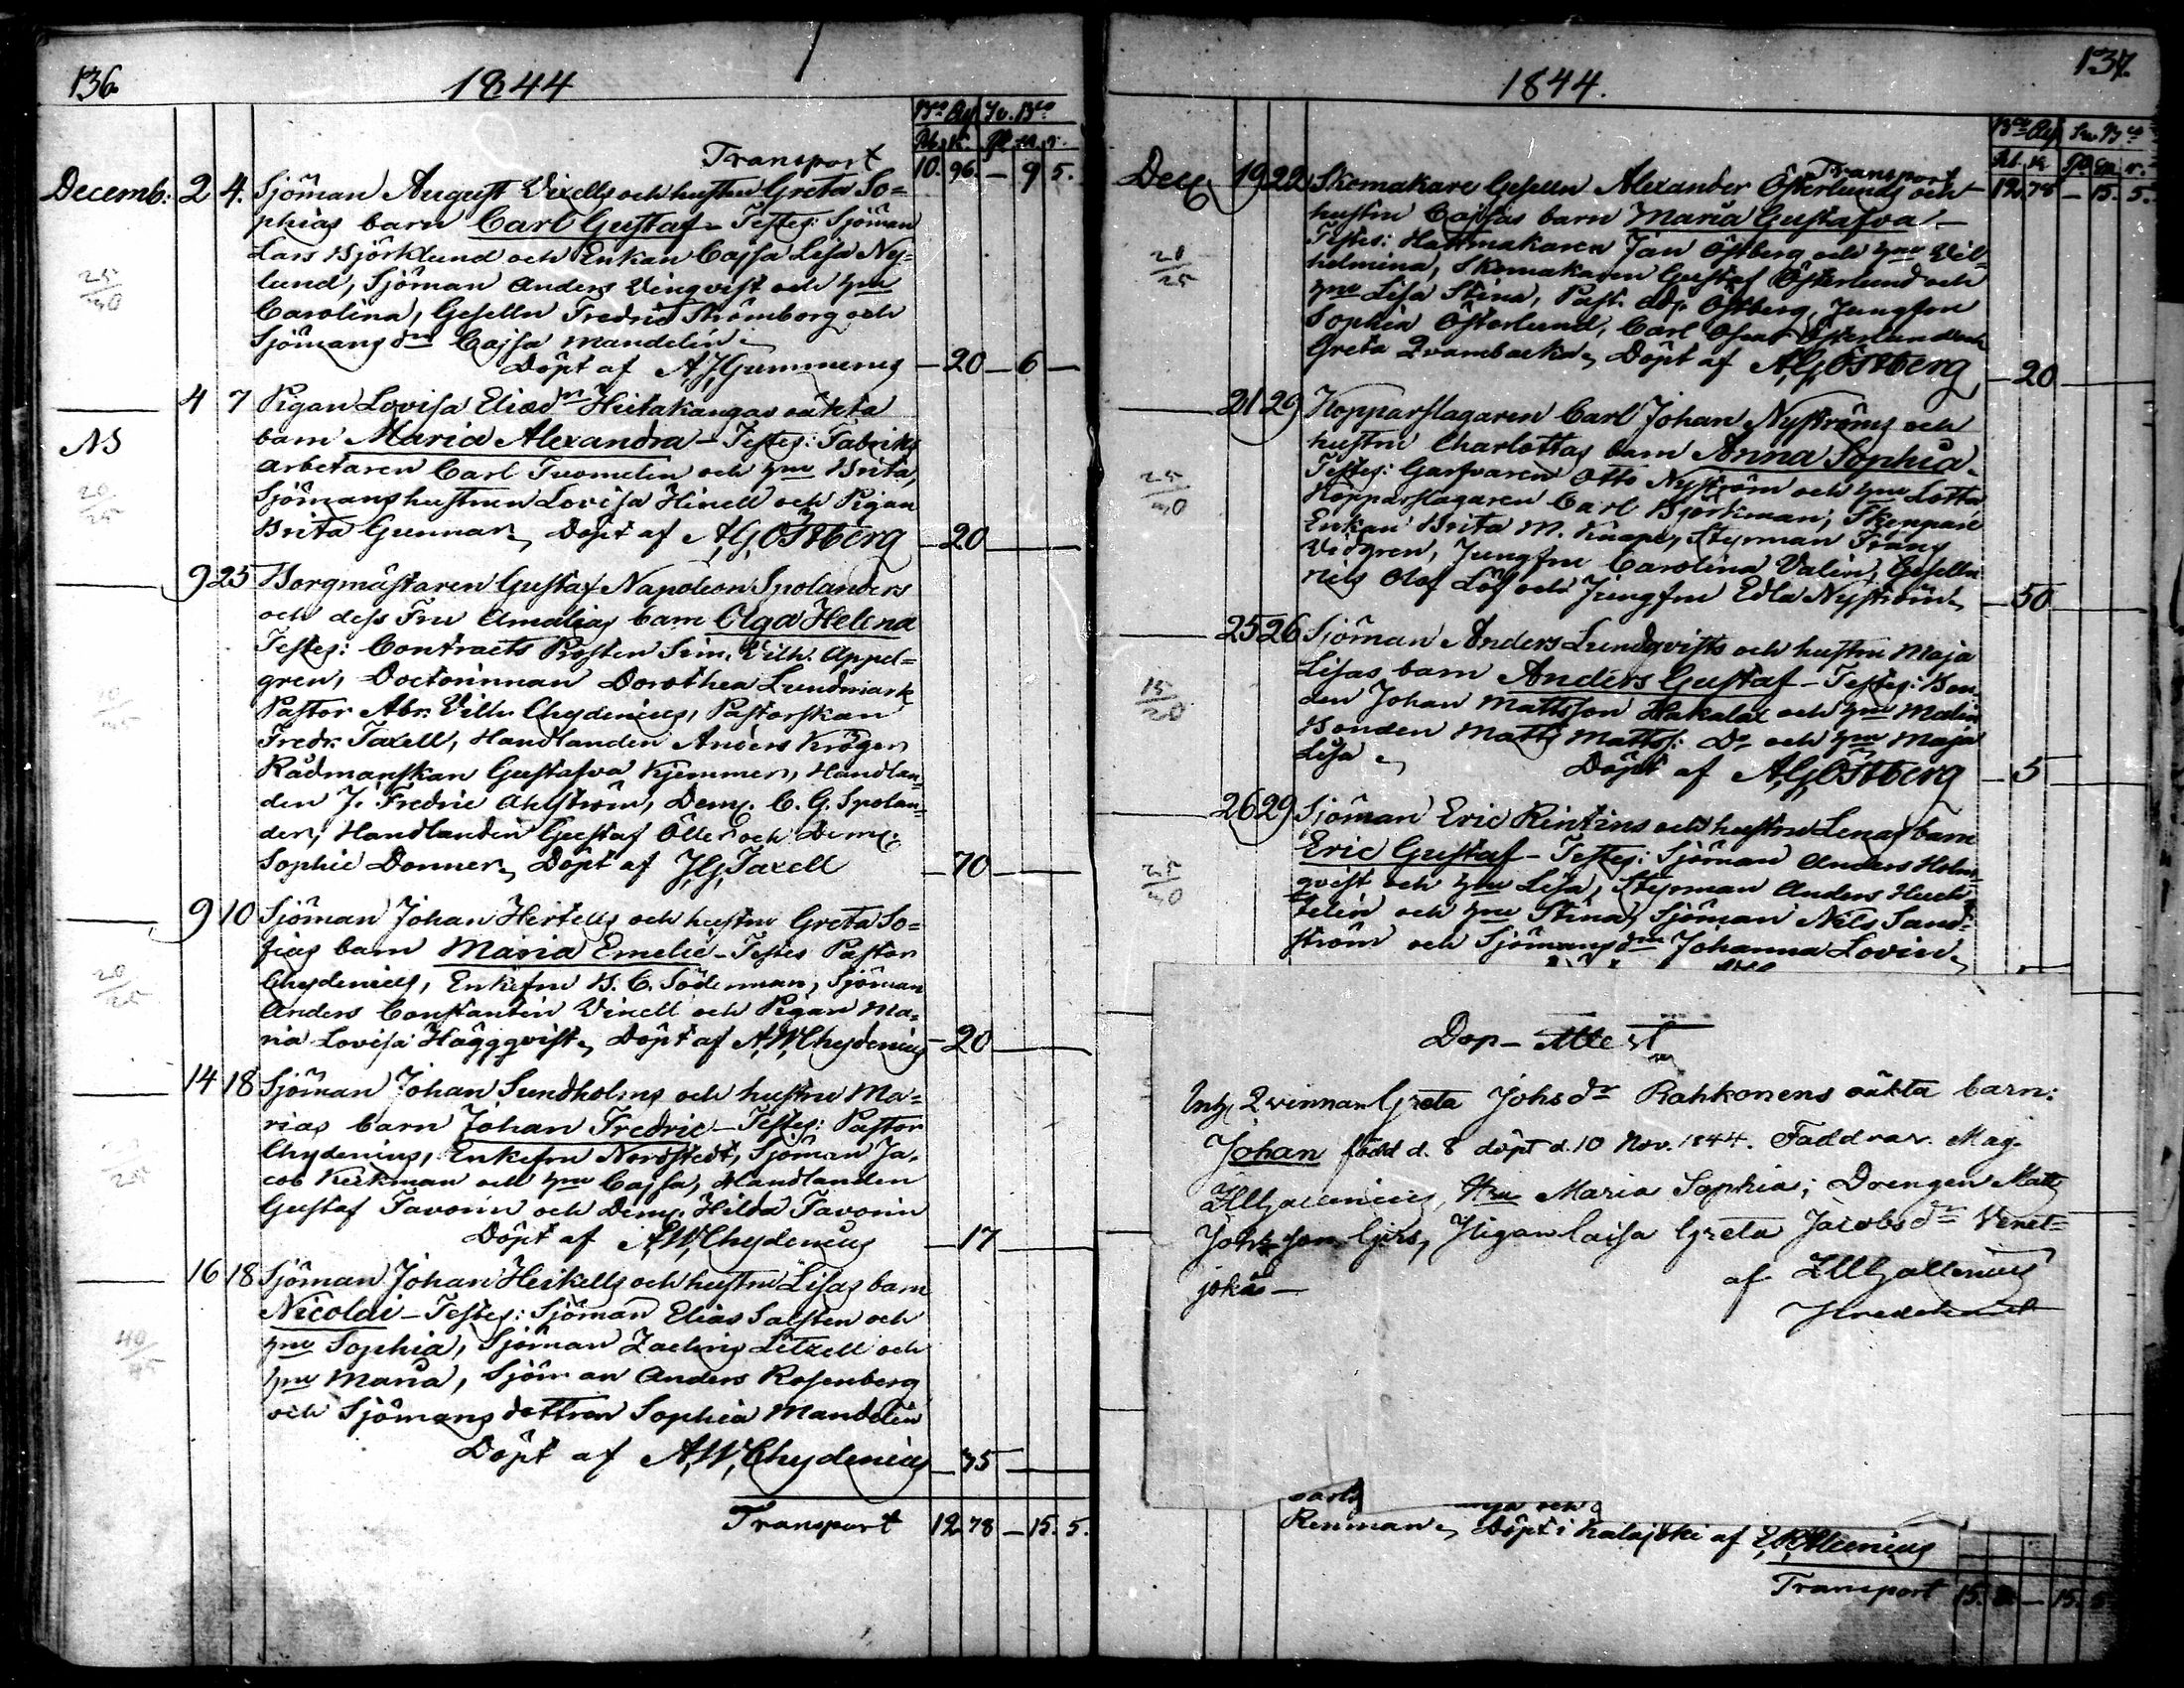 136.
1844
Bco Ass. Sv. Bco
Rb. k. Rd sk. r.
Transport 10. 96. — 9 5.
Decemb: 2 4. Sjöman August Vixells och hustru Greta So=
phias barn Carl Gustaf – Testes: Sjöman
Lars Björklund och Enkan Cajsa Lisa Ny=
lund, Sjöman Anders Vinqvist och hu
25/30
Carolina, Gesellen Fredric Strömborg och
Sjömans dr Cajsa Mandelin
Döpt af A.J. Gummerus — 20 — 6 —
4 7 Pigan Lovisa Eliædr Hietakangas oäkta
barn Maria Alexandra – Testes: Fabriks
NS
arbetaren Carl Tuomelin och hu Brita,
20/25
Sjömans hustrun Lovisa Hinell och Pigan
Brita Gunnar. Döpt af A.G. Östberg — 20
9 25 Borgmästaren Gustaf Napoleon Spolanders
och dess Fru Amalias barn Olga Helena
Testes: Contracts Prosten Sim. Vilh. Appel=
gren, Doctorinnan Dorothea Lundmark
Pastor Abr. Vilh. Chydenius, Pastorskan
Fredr. Taxell, Handlanden Anders Kröger
Rådmanskan Gustafva Kjemmer, Handlan=
den J. Fredric Ahlström, Dems. C. G. Spolan=
der, Handlanden Gustaf Öller och Dems.
Sophie Donner. Döpt af J.G. Taxell — 70
9 10 Sjöman Johan Hertells och hustru Greta So=
fias barn Maria Emelie – Testes Pastor
20/25
Chydenius, Enkefru B. C. Söderman, Sjöman
Anders Constantin Vixell och Pigan Ma=
ria Lovisa Häggqvist. Döpt af A.W. Chydenius — 20
14 18 Sjöman Johan Sundholms och hustru Ma=
rias barn Johan Fredric – Testes: Pastor
Chydenius, Enkefru Nordstedt, Sjöman Ja=
cob Keckman och hu Cajsa, Handlanden
Gustaf Favorin och Dems. Hilda Favorin
Döpt af A.W. Chydenius — 17
16 18 Sjöman Johan Heikells och hustru Lisas barn
Nicolai – Testes: Sjöman Elias Salsten och
40/45
hu Sophia, Sjöman Zachris Litzell och
hu Maria, Sjöman Anders Rosenberg
och Sjömans dottren Sophia Mandelin
Döpt af A.W. Chydenius — 35
Transport 12 78 — 15. 5.
137.
1844.
Bco Ass. Sv. Bco
Rb. k. Rd sk. r.
Transport
Dec. 19 22 Skomakare Gesellen Alexander Österlunds och 12. 78 — 15. 5.
hustru Cajsas barn Maria Gustafva –
Testes: Hattmakaren Jan Östberg och hu Vil=
20/25
helmina, Skomakaren Gustaf Österlund och
hu Lisa Stina, Past. Adj. Östberg, Jungfru
Sophia Österlund, Carl Oscar Österlund och
Greta Qvambacka. Döpt af A.G. Östberg — 20
21 29 Kopparslagaren Carl Johan Nyströms och
hustru Charlottas barn Anna Sophia.
Testes: Garfvaren Otto Nyström och hu Lotta
25/30
Kopparslagaren Carl Björkman, Skeppare
Enkan Brita M. Knape, Styrman Frans
Vidgren, Jungfru Carolina Valin, Gesellen
Nils Olof Löf och Jungfru Edla Nyström. — 50
25 26 Sjöman Anders Lundqvists och hustru Maja
Lisas barn Anders Gustaf – Testes: Bon=
15/20
den Johan Mattsson Hakalax och hu Malin
Bonden Matts Mattss: Do och hu Maja
Lisa. Döpt af A.G. Östberg — 5
26 29 Sjöman Eric Rintins och hustru Lenas barn
Eric Gustaf – Testes: Sjöman Anders Holm=
25/30
qvist och hu Lisa, Styrman Anders
och hu Stina, Sjöman Nils Sand=
ström och Sjömans dr Johanna Lovin.
Dop–Attest
Qvinnan Greta Johsdr Rahkonens oäkta barn:
Johan född d. 8 döpt d. 10 Nov. 1844. Faddrar. Mag.
Hru Maria Sophia; Drengen Matts
Johsson Girs, Pigan Caisa Greta Jacobsdr Venet=
joki —
af
Renman. Döpt i Kalajoki af
Transport 15. — 15. 5